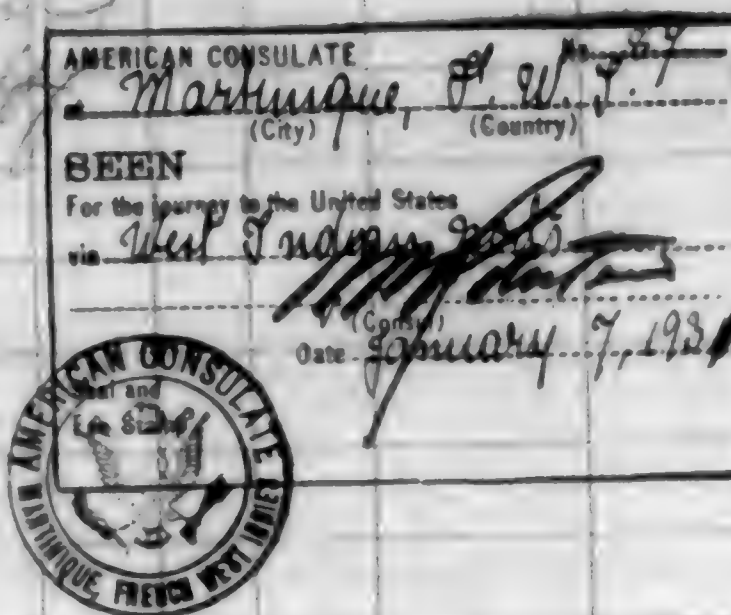 AMERICAN CONSULATE No.
at Martinique, F. W. I.
(City) (Country)
SEEN
For the journey to the United States
via West Indian Ports
(Consul)
Date January 7, 1931
Seal and
Fee Stamp
AMERICAN CONSULATE
MARTINIQUE, FRENCH WEST INDIES